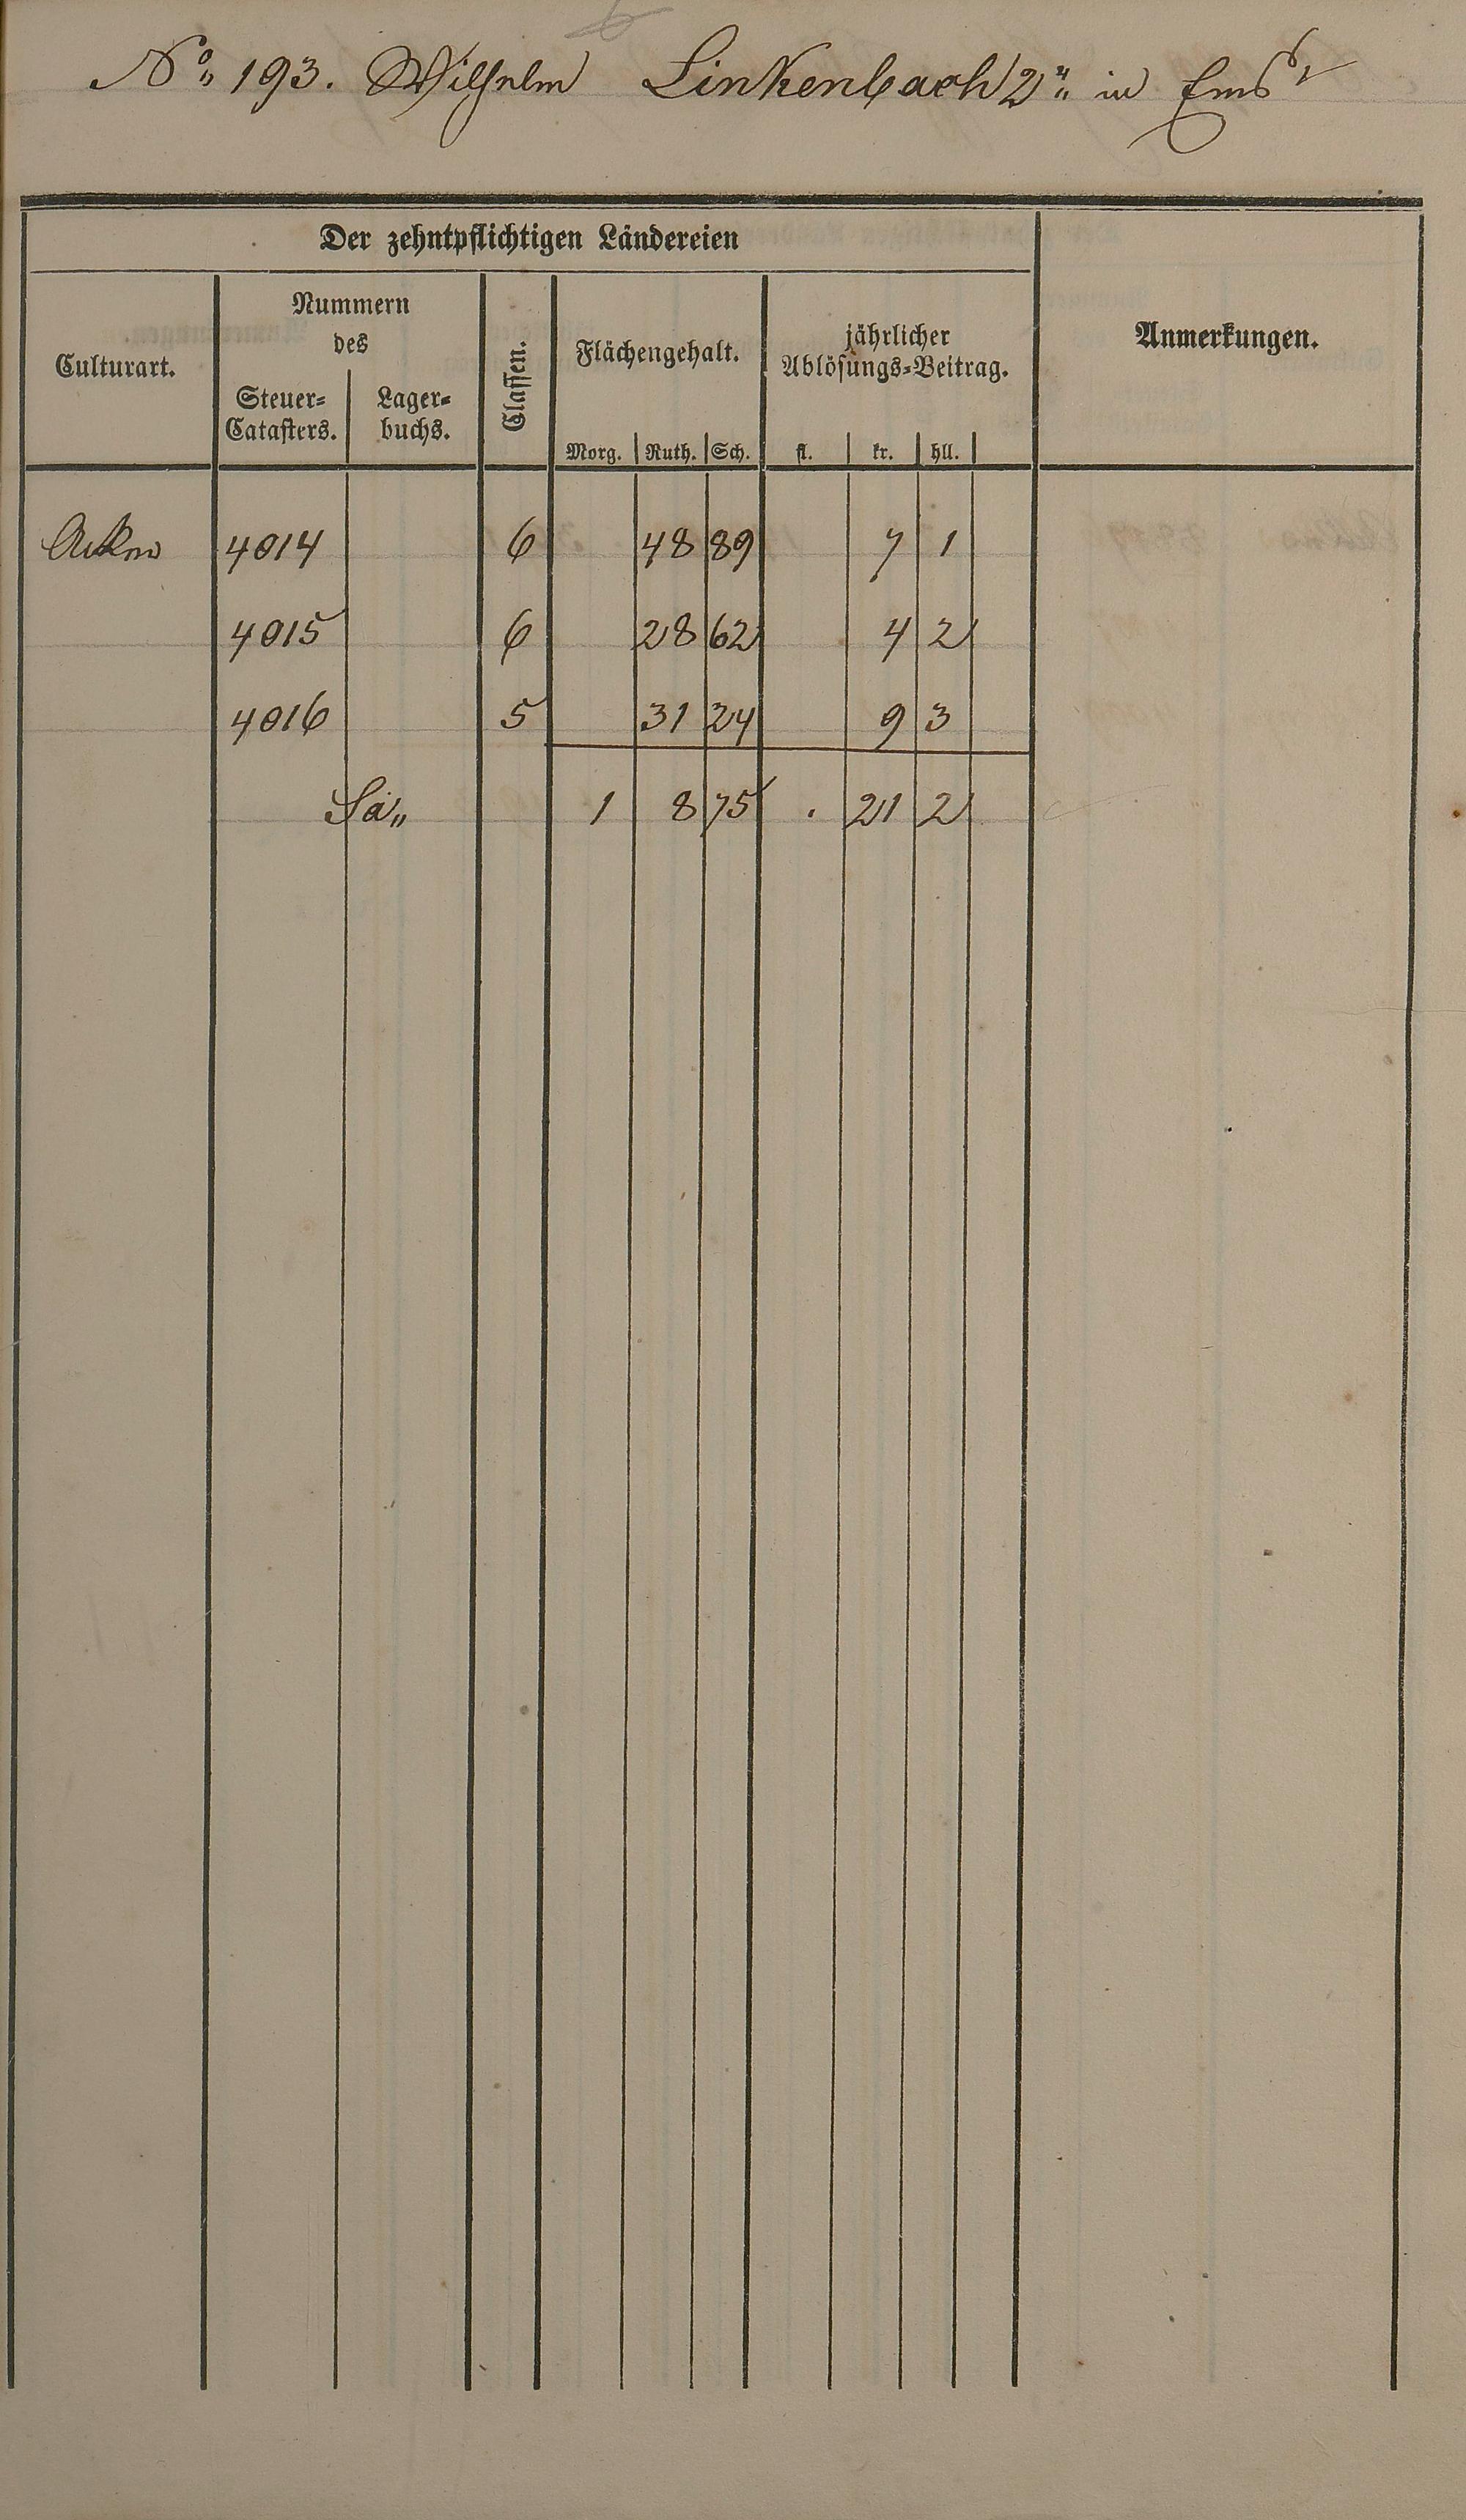 No. 193. Wilhelm Linkenbach 2r in Ems
Der zehntpflichtigen Ländereien
Culturart.
Nummern
des
Steuer=
Catasters.
Lager=
buchs.
Classen.
Flächengehalt.
Morg. Ruth. Sch.
jährlicher
Ablösungs=Beitrag.
fl. kr. hll.
Anmerkungen.
Acker 4014 6 48 89 7 1
4015 6 28 62 4 2
4016 5 31 24 9 3
Sa 1 8 75 . 21 2